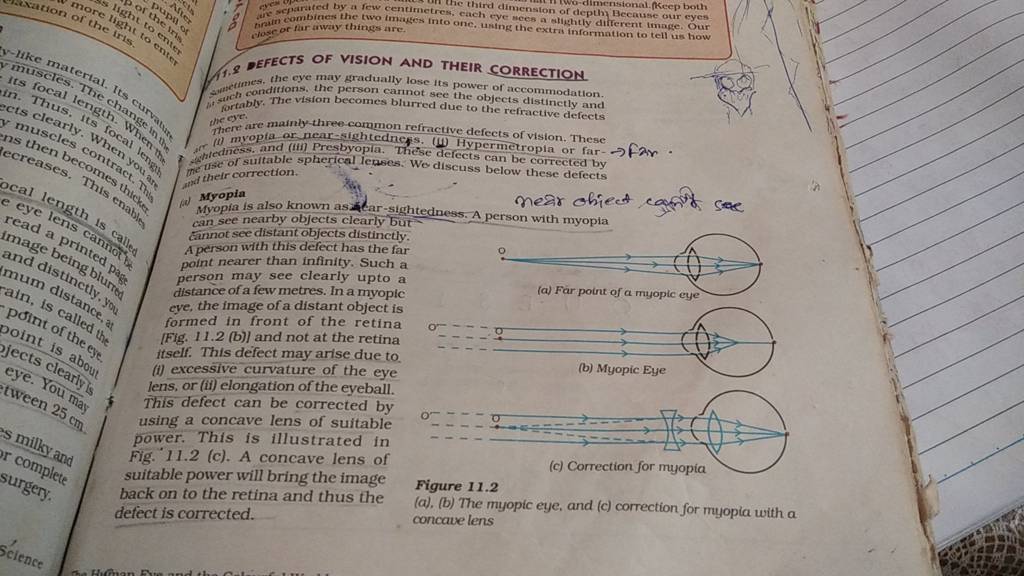 After
pupil of
the iris of
less light to enter
more light to enter
relaxation of the iris.
two-dimensional. (Keep both
eyes open on the third dimension of depth) Because our eyes
are separated by a few centimetres, each eye sees a slightly different image. Our
brain combines the two images into one, using the extra information to tell us how
close or far away things are.
ty-like material. Its curvature
muscles. The change in the
its focal length. When the
in. Thus, its focal length
ects clearly. When you are
y muscles contract. This
ens then becomes thicker.
decreases. This enables
ocal length is called
e eye lens cannot be
read a printed page
image being blurred
and distinctly, you
imum distance, at
rain, is called the
point of the eye.
point is about
jects clearly is
eye. You may
etween 25 cm
es milky and
or complete
surgery.
Science
11.2 DEFECTS OF VISION AND THEIR CORRECTION
Sometimes, the eye may gradually lose its power of accommodation.
In such conditions, the person cannot see the objects distinctly and
fortably. The vision becomes blurred due to the refractive defects
the eye.
There are mainly three common refractive defects of vision. These
are (i) myopia or near-sightedness, (ii) Hypermetropia or far- → far .
sightedness, and (iii) Presbyopia. These defects can be corrected by
the use of suitable spherical lenses. We discuss below these defects
and their correction.
(a) Myopia
near object cannot see
Myopia is also known as near-sightedness. A person with myopia
can see nearby objects clearly but
cannot see distant objects distinctly.
A person with this defect has the far
point nearer than infinity. Such a
person may see clearly upto a
distance of a few metres. In a myopic
eye, the image of a distant object is
formed in front of the retina
[Fig. 11.2 (b)] and not at the retina
itself. This defect may arise due to
(i) excessive curvature of the eye
lens, or (ii) elongation of the eyeball.
This defect can be corrected by
using a concave lens of suitable
power. This is illustrated in
Fig. 11.2 (c). A concave lens of
suitable power will bring the image
back on to the retina and thus the
defect is corrected.
O
(a) Far point of a myopic eye
O' O
(b) Myopic Eye
O' O
(c) Correction for myopia
Figure 11.2
(a), (b) The myopic eye, and (c) correction for myopia with a
concave lens
The Human Eye and the Colourful World